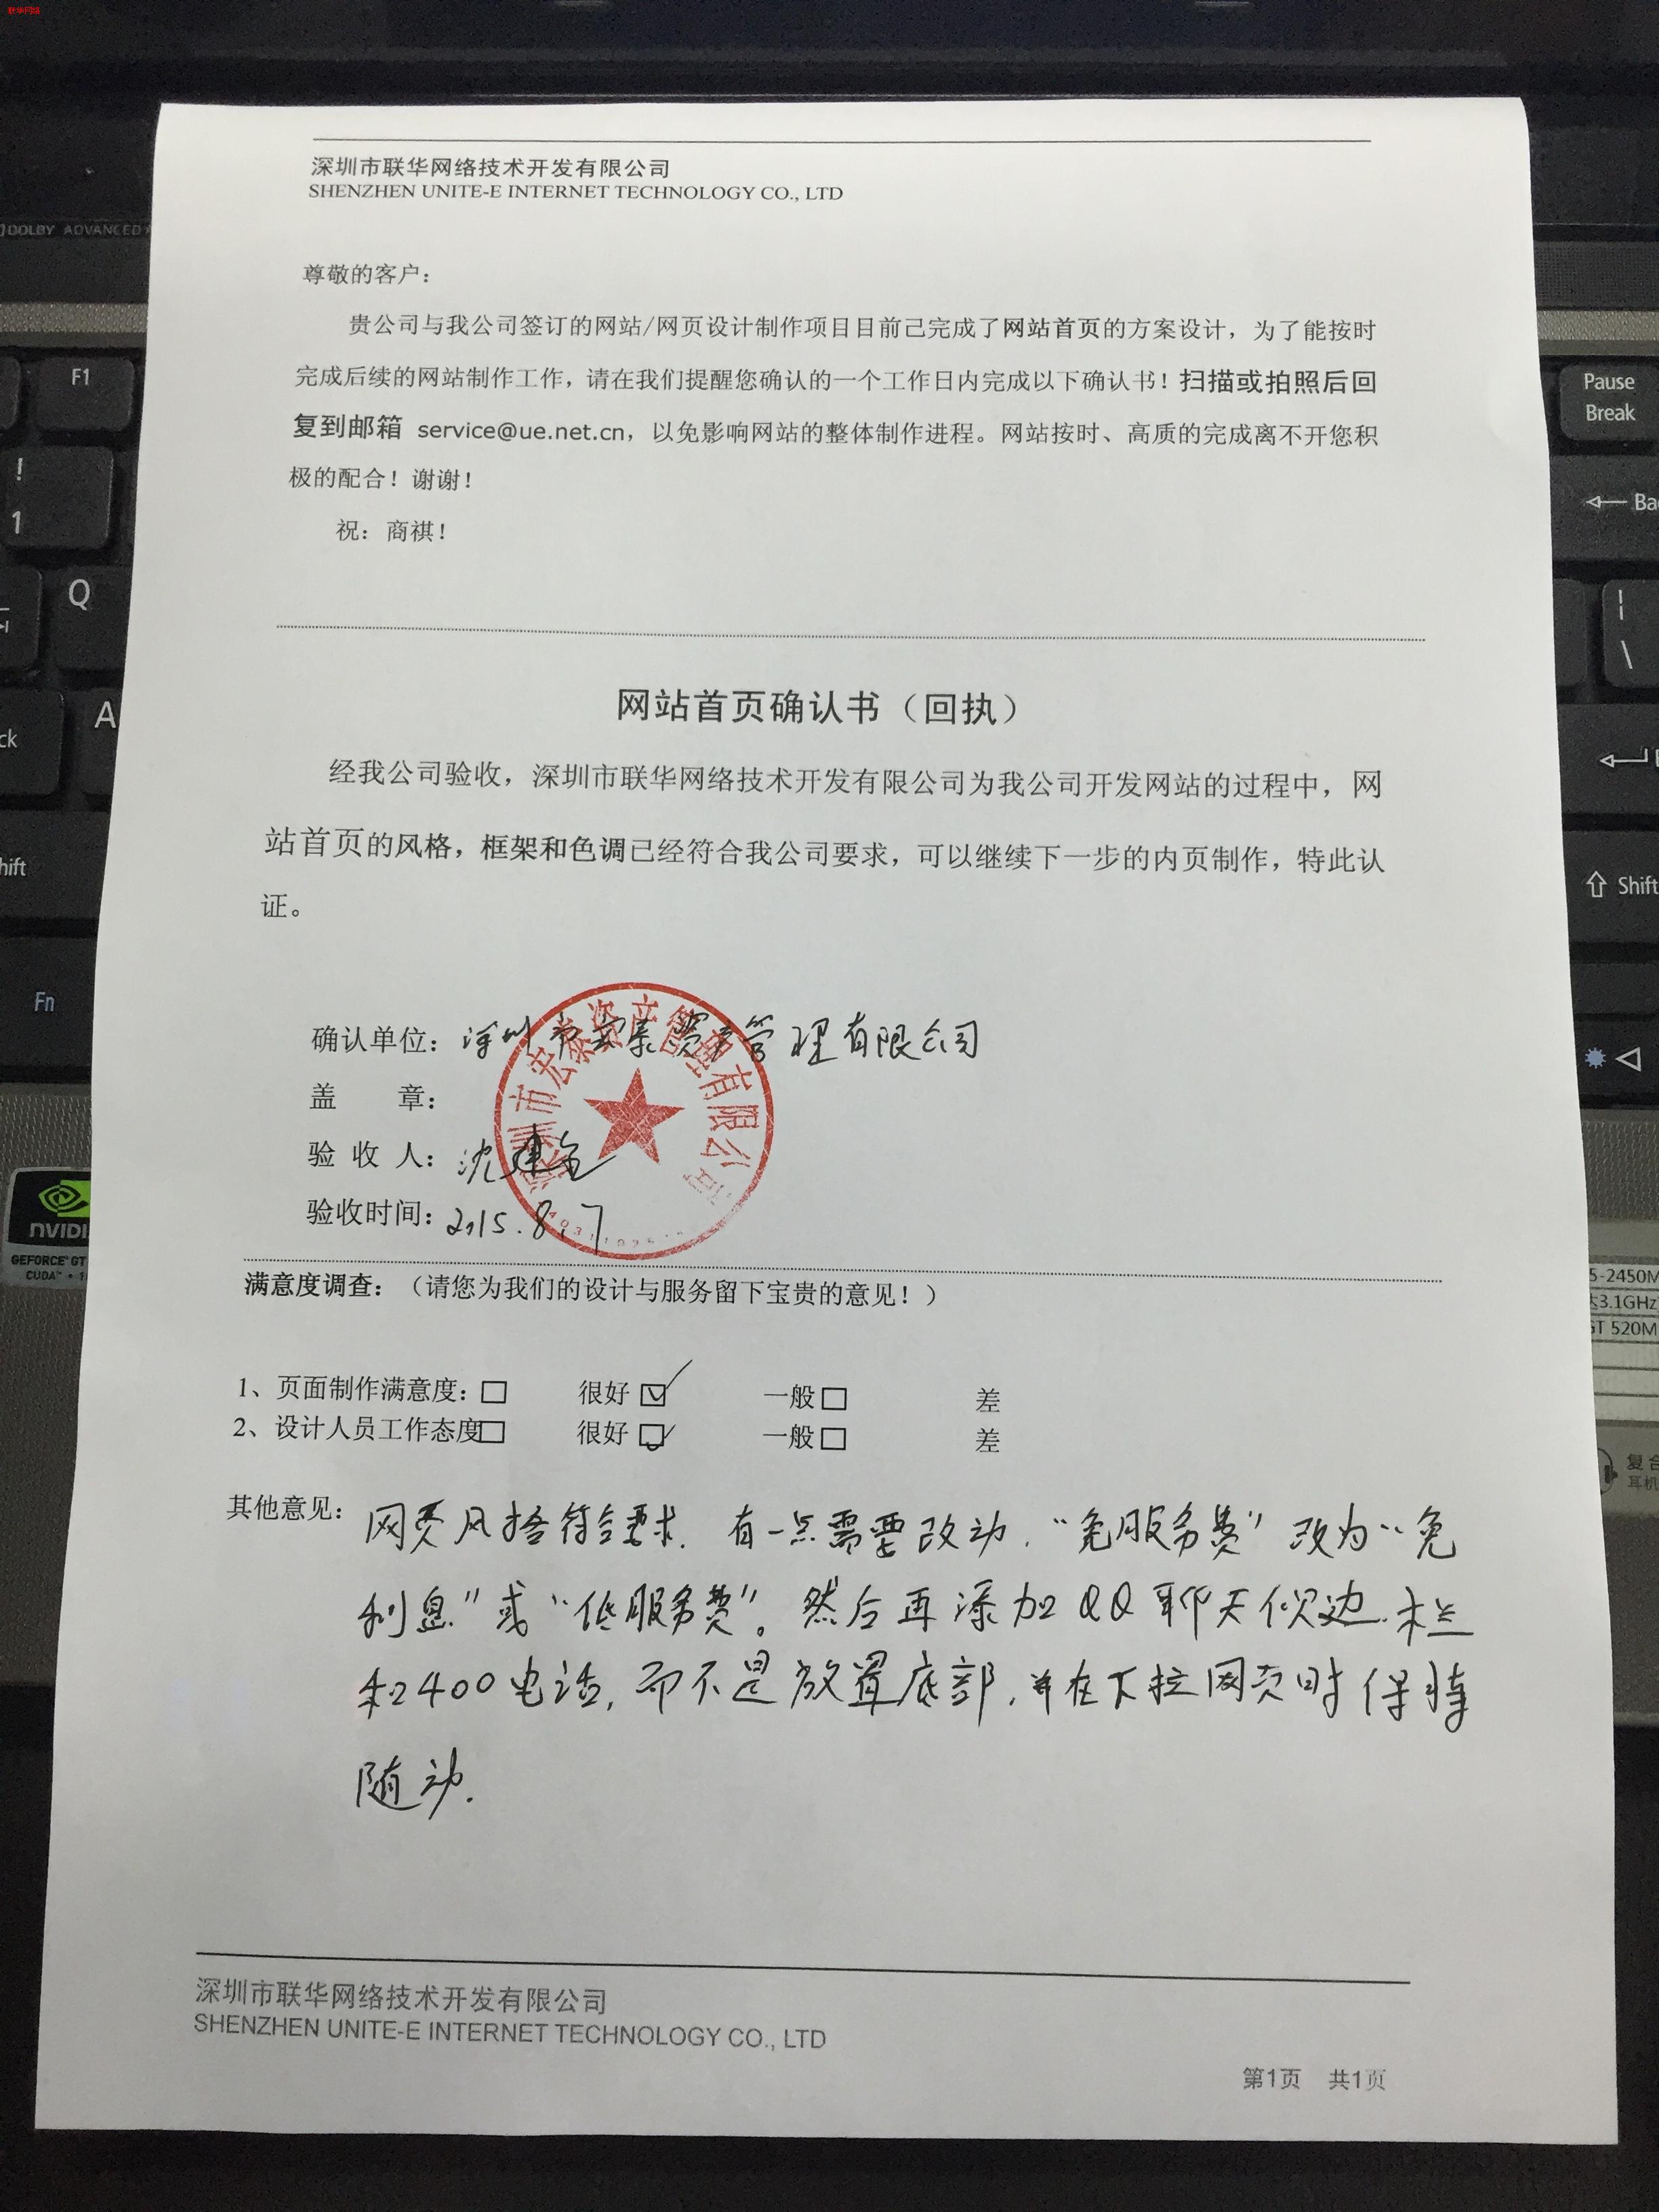 联华网络
深圳市联华网络技术开发有限公司
SHENZHEN UNITE-E INTERNET TECHNOLOGY CO., LTD
DOLBY ADVANCED
尊敬的客户：
贵公司与我公司签订的网站/网页设计制作项目目前已完成了网站首页的方案设计，为了能按时
完成后续的网站制作工作，请在我们提醒您确认的一个工作日内完成以下确认书！扫描或拍照后回
复到邮箱 service@ue.net.cn，以免影响网站的整体制作进程。网站按时、高质的完成离不开您积
极的配合！谢谢！
祝：商祺！
F1
Pause
Break
!
1
Q
A
Fn
Shift
网站首页确认书（回执）
经我公司验收，深圳市联华网络技术开发有限公司为我公司开发网站的过程中，网
站首页的风格，框架和色调已经符合我公司要求，可以继续下一步的内页制作，特此认
证。
确认单位：深圳市宏泰资产管理有限公司
盖 章：
深圳市宏泰资产管理有限公司
验 收 人：沈建
验收时间：2015.8.7
满意度调查：（请您为我们的设计与服务留下宝贵的意见！）
1、页面制作满意度：□ 很好☑ 一般□ 差
2、设计人员工作态度□ 很好☑ 一般□ 差
其他意见：网页风格符合要求. 有一点需要改动. “免服务费”改为“免
利息”或“低服务费”。然后再添加QQ聊天侧边栏
和400电话, 而不是放置底部, 并在下拉网页时保持
随动.
NVIDI
GEFORCE GT
CUDA
5-2450M
3.1GHz
GT 520M
复合
耳机
深圳市联华网络技术开发有限公司
SHENZHEN UNITE-E INTERNET TECHNOLOGY CO., LTD
第1页 共1页